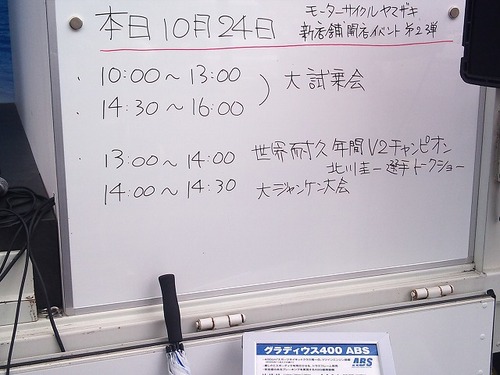 本日10月24日
モーターサイクルヤマザキ
新店舗開店イベント第2弾
・ 10:00〜13:00
・ 14:30〜16:00
大試乗会
・ 13:00〜14:00 世界耐久年間V2チャンピオン
北川圭一選手トークショー
・ 14:00〜14:30 大ジャンケン大会
グラディウス400 ABS
ABS